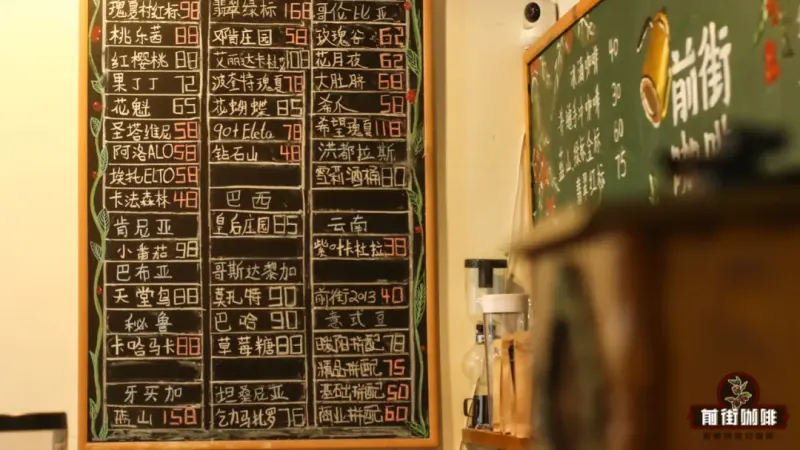 瑰夏村红标98
桃乐茜88
红樱桃88
果丁丁72
花魁65
圣塔维尼58
阿洛ALO58
埃托ELTO58
卡法森林48
肯尼亚
小番茄98
巴布亚
天堂鸟88
秘鲁
卡哈马卡88
牙买加
蓝山158
翡翠绿标168
邓肯庄园58
艾丽达卡杜拉108
波奎特瑰夏78
花蝴蝶85
90+Eleta 78
钻石山48
巴西
皇后庄园85
哥斯达黎加
莫扎特90
巴哈90
草莓糖88
坦桑尼亚
乞力马扎罗76
哥伦比亚
玫瑰谷62
花月夜62
大肚脐68
58
希望瑰夏118
洪都拉斯
雪莉酒桶80
云南
紫叶卡杜拉38
前街2013 40
意式豆
暖阳拼配78
精品拼配75
基础拼配50
商业拼配60
前街咖啡
冰滴咖啡 40
手冲咖啡 30
60
红标 75
前街咖啡